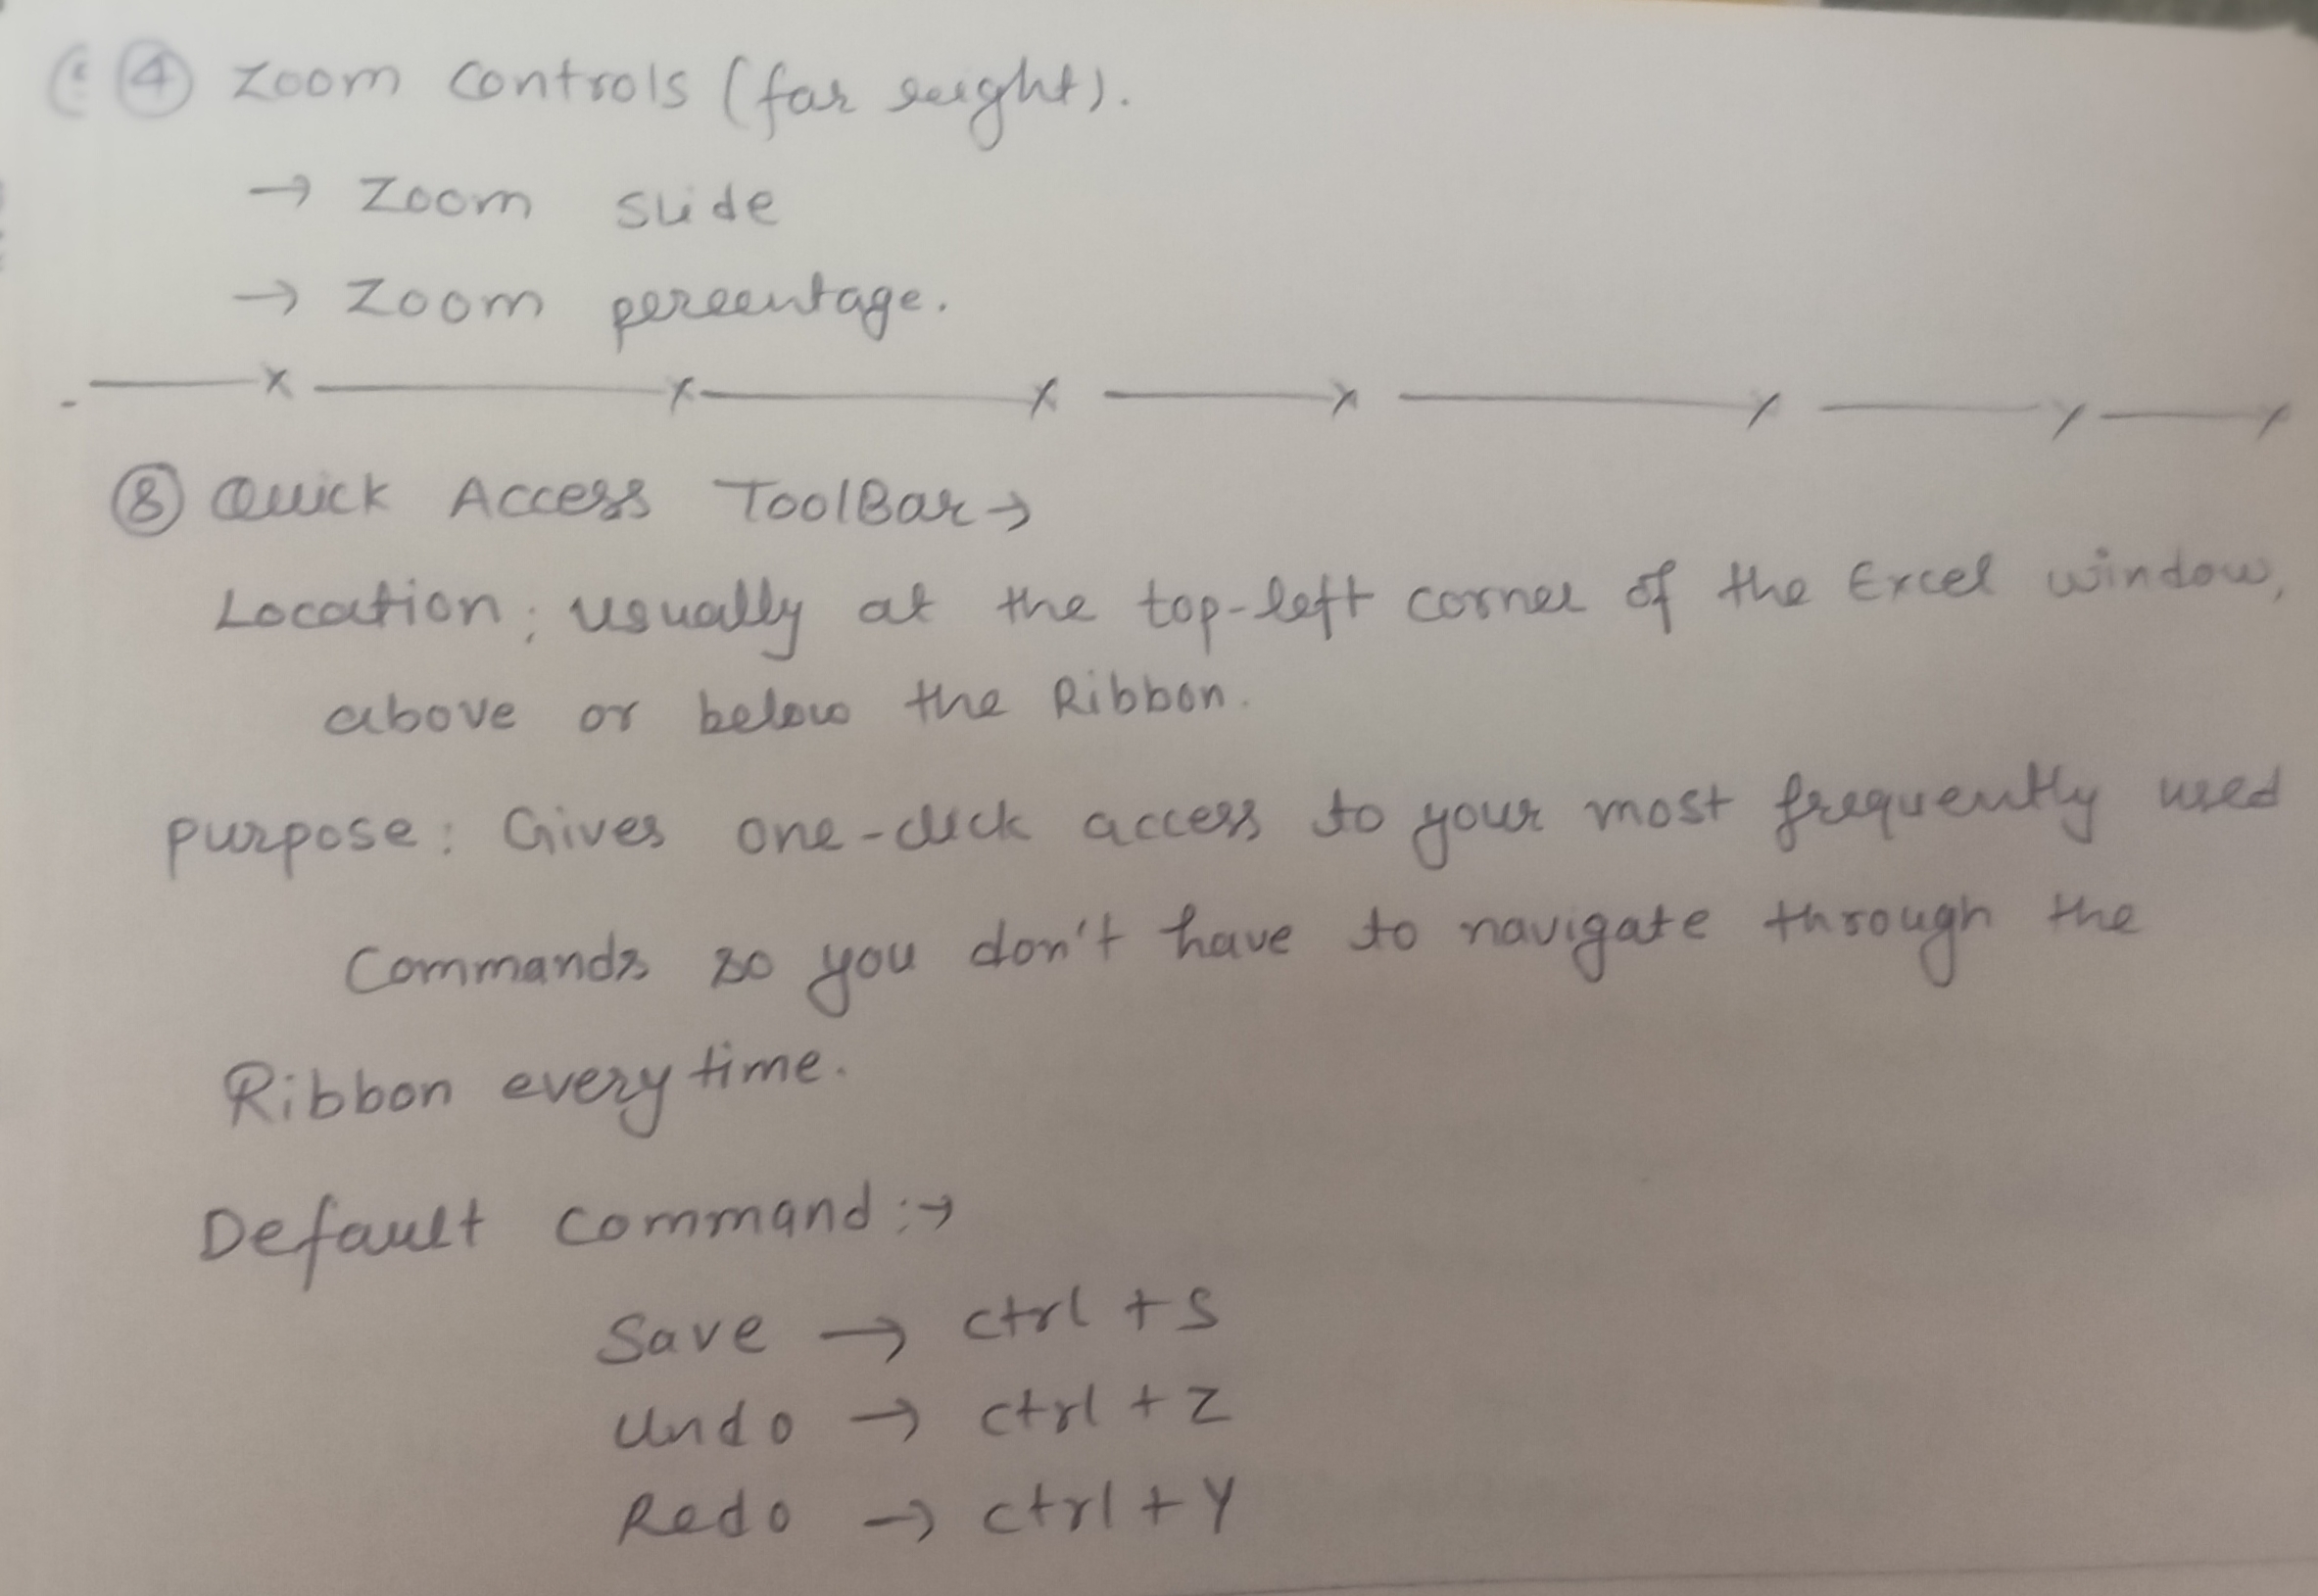 ④ Zoom controls (far right).
→ Zoom slide
→ Zoom percentage.
—x—x—x—x—x—x—x
⑧ Quick Access ToolBar→
Location: usually at the top-left corner of the Excel window,
above or below the Ribbon.
purpose: Gives one-click access to your most frequently used
Commands so you don't have to navigate through the
Ribbon every time.
Default command :→
Save → ctrl + S
Undo → ctrl + Z
Redo → ctrl + Y